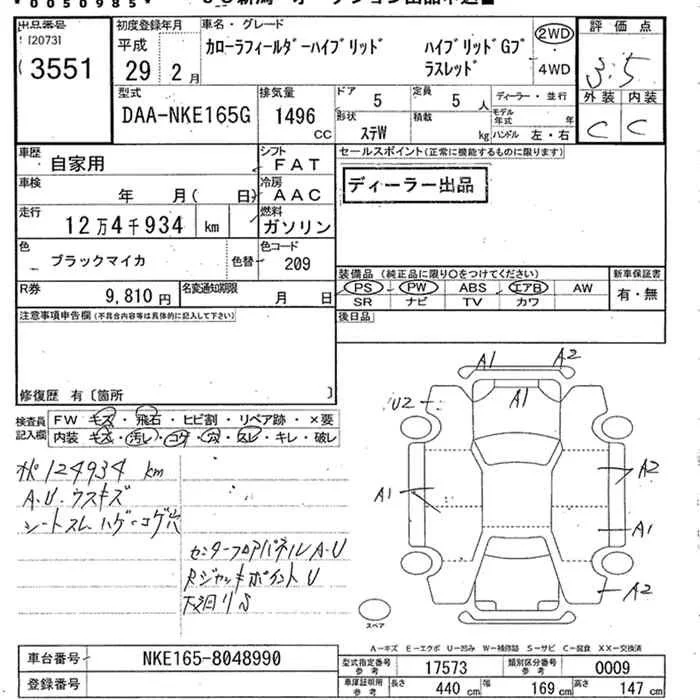 *0050985*
出品番号 初度登録年月 車名・グレード 評価点
[2073] 平成 カローラフィールダーハイブリッド ハイブリッドGブラスレッド 2WD 3.5
3551 29 2月 4WD 外装 内装
型式 排気量 ドア 5 定員 5人 ディーラー・並行 C C
DAA-NKE165G 1496 CC 形状 ステW 積載 kg モデル年式 年 ハンドル 左・右
車歴 自家用 シフト FAT セールスポイント(正常に機能するものに限ります)
車検 年 月( 日) 冷房 AAC ディーラー出品
走行 12万4千934 km 燃料 ガソリン
色 ブラックマイカ 色替 色コード 209
装備品(純正品に限り○をつけてください) 新車保証書
R券 9,810円 名変通知期限 月 日 PS PW ABS エアB AW 有・無
SR ナビ TV カワ
注意事項申告欄(不具合内容等は具体的に記入して下さい) 後日品
修復歴 有〔箇所 〕
検査員記入欄 FW キズ・飛石・ヒビ割・リペア跡・×要
内装 キズ・汚レ・コゲ・穴・スレ・キレ・破レ
124934 km
A.U.ウスキズ
シートスレ ハゲ・コゲ穴
センターフロアパネルA.U
RジャッキポイントU
下廻りS
A1 A2
U2 A1
A1 A2
A1
A2
スペア
A-キズ E-エクボ U-凹み W-補修跡 S-サビ C-腐食 XX-交換済
車台番号 NKE165-8048990 型式指定番号参考 17573 類別区分番号参考 0009
登録番号 車庫証明用参考 長さ 440 cm 幅 169 cm 高さ 147 cm